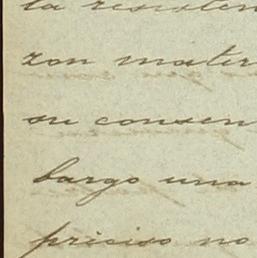 la resisten
zon mater
su consen
bargo una
preciso no